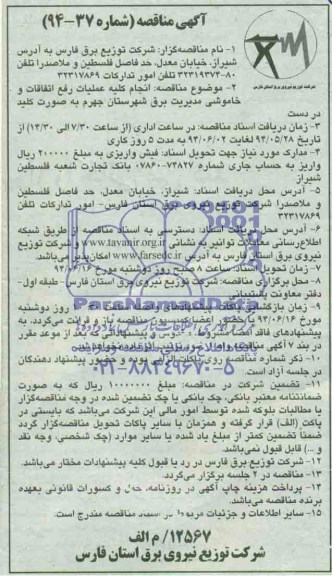 آگهی مناقصه (شماره ۳۷-۹۴)
۱- نام مناقصه‌گزار: شرکت توزیع برق فارس به آدرس
شیراز، خیابان معدل، حد فاصل فلسطین و ملاصدرا تلفن
۸۰-۳۲۳۱۹۳۷۴ تلفن امور تدارکات ۳۲۳۱۷۸۶۹
۲- موضوع مناقصه: انجام کلیه عملیات رفع اتفاقات و
خاموشی مدیریت برق شهرستان جهرم به صورت کلید
در دست
شرکت توزیع نیروی برق استان فارس
۳- زمان دریافت اسناد مناقصه: در ساعت اداری (از ساعت ۷/۳۰ الی ۱۴/۳۰) از
تاریخ ۹۴/۰۵/۲۸ لغایت ۹۴/۰۶/۰۲ به مدت ۵ روز کاری
۴- مدارک مورد نیاز جهت تحویل اسناد: فیش واریزی به مبلغ ۲۰۰۰۰۰ ریال
واریز به حساب جاری شماره ۰۷۸۶۰۰۷۳۸۲۷ بانک تجارت شعبه فلسطین
شیراز
۵- آدرس محل دریافت اسناد: شیراز، خیابان معدل، حد فاصل فلسطین
و ملاصدرا شرکت توزیع نیروی برق استان فارس- امور تدارکات تلفن
۳۲۳۱۷۸۶۹
۶- آدرس محل دریافت اسناد: دسترسی به اسناد مناقصه از طریق شبکه
اطلاع‌رسانی معاملات توانیر به نشانی www.tavanir.org.ir و شرکت توزیع
نیروی برق استان فارس به آدرس www.farsedc.ir امکان پذیر می‌باشد.
۷- زمان تحویل اسناد: ساعت ۸ صبح روز دوشنبه مورخ ۹۴/۰۶/۱۶
۸- محل برگزاری مناقصه: شرکت توزیع نیروی برق استان فارس- طبقه اول-
دفتر معاونت پشتیبانی
۹- زمان بازگشایی پاکات پیشنهادهای روز دوشنبه
مورخ ۹۴/۰۶/۱۶ با حضور اعضا
پیشنهادهای فاقد امضا، مشروط، مخدوش و پیشنهاداتی که بعد از موعد مقرر
در بند ۷ آگهی مناقصه واصل
۱۰- ذکر شماره مناقصه روی پاکات الزامی بوده و حضور پیشنهاد دهندگان
در جلسه آزاد است.
۱۱- تضمین شرکت در مناقصه: مبلغ ۱۰۰۰۰۰۰۰ ریال که به صورت
ضمانتنامه معتبر بانکی، چک بانکی یا چک تضمین شده در وجه مناقصه‌گزار
یا مطالبات بلوکه شده توسط امور مالی این شرکت می‌باشد که بایستی در
پاکت (الف) قرار گرفته و همزمان با سایر پاکات تحویل مناقصه‌گزار گردد
ضمناً تضمین کمتر از مبلغ یاد شده یا سایر موارد (چک شخصی، وجه نقد
و ...) قابل قبول نمی‌باشد.
۱۲- شرکت توزیع برق فارس در رد یا قبول کلیه پیشنهادات مختار می‌باشد.
۱۳- مناقصه در ۲ جلسه برگزار می‌گردد.
۱۴- پرداخت هزینه چاپ آگهی در روزنامه، حمل و کسورات قانونی بعهده
برنده مناقصه می‌باشد.
۱۵- سایر اطلاعات و جزئیات مربوط در اسناد مناقصه مندرج است.
۱۲۵۶۷/م الف
شرکت توزیع نیروی برق استان فارس
ParsNamadData
۰۲۱-۸۸۳۴۹۶۷۰-۵